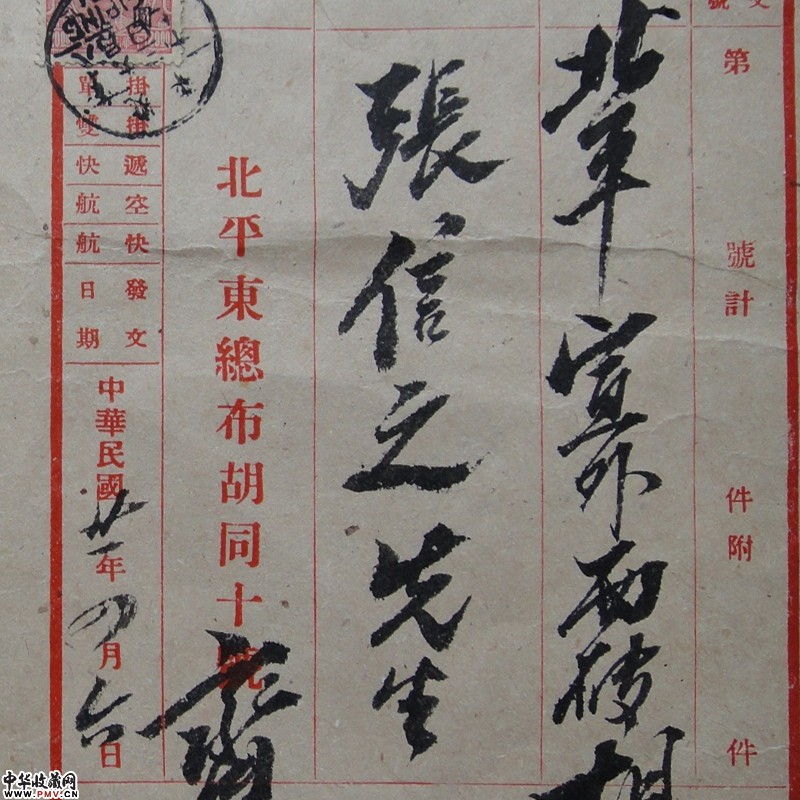 文號
第 號計 件附 件
北平宣外西磚胡
張信之先生
北平東總布胡同十號
掛 掛 遞 空 快 發文
單 雙 快 航 航 日期
中華民國廿一年四月六日
中华收藏网
www.PMV.CN